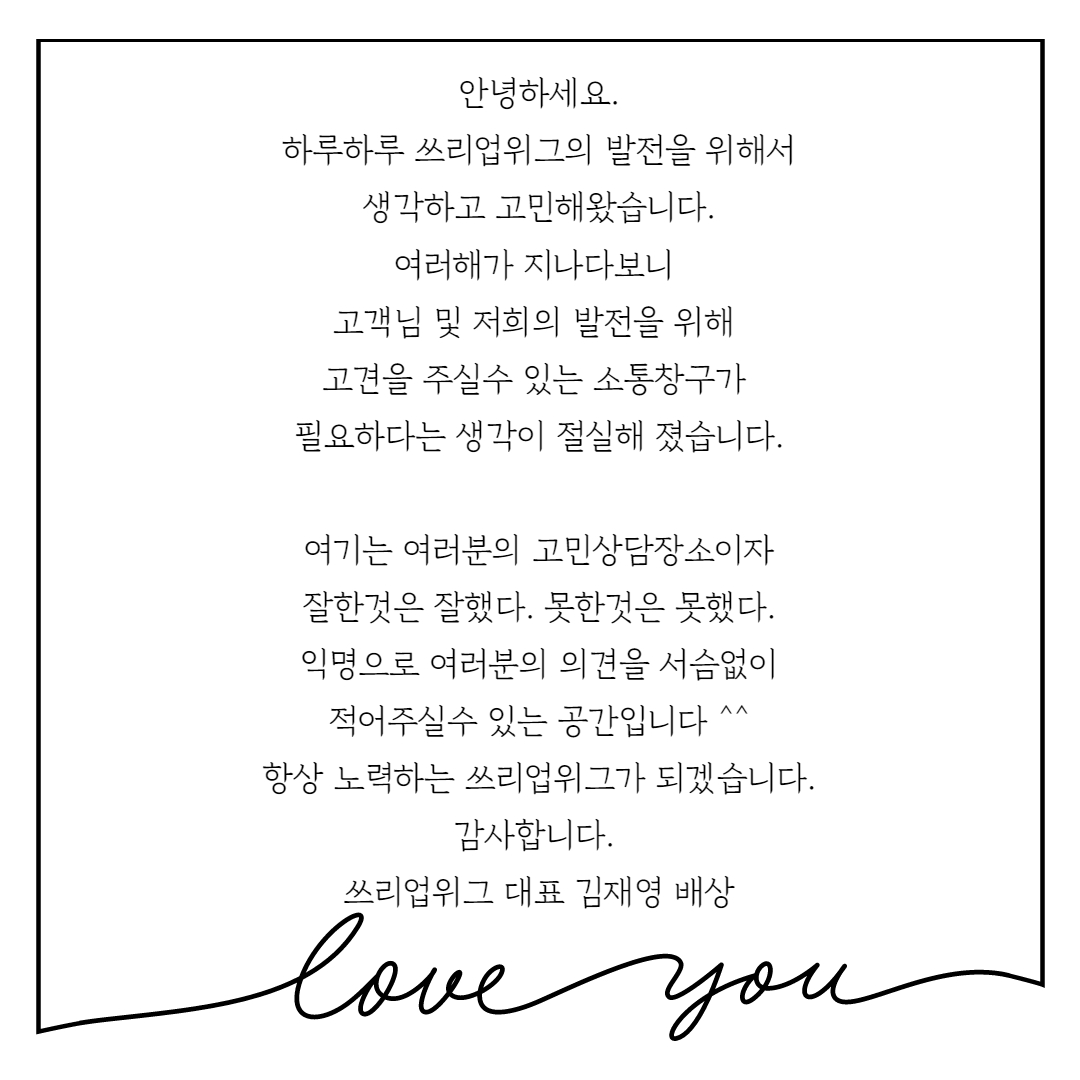 안녕하세요.
하루하루 쓰리업위그의 발전을 위해서
생각하고 고민해왔습니다.
여러해가 지나다보니
고객님 및 저희의 발전을 위해
고견을 주실수 있는 소통창구가
필요하다는 생각이 절실해 졌습니다.
여기는 여러분의 고민상담장소이자
잘한것은 잘했다. 못한것은 못했다.
익명으로 여러분의 의견을 서슴없이
적어주실수 있는 공간입니다 ^^
항상 노력하는 쓰리업위그가 되겠습니다.
감사합니다.
쓰리업위그 대표 김재영 배상
love you